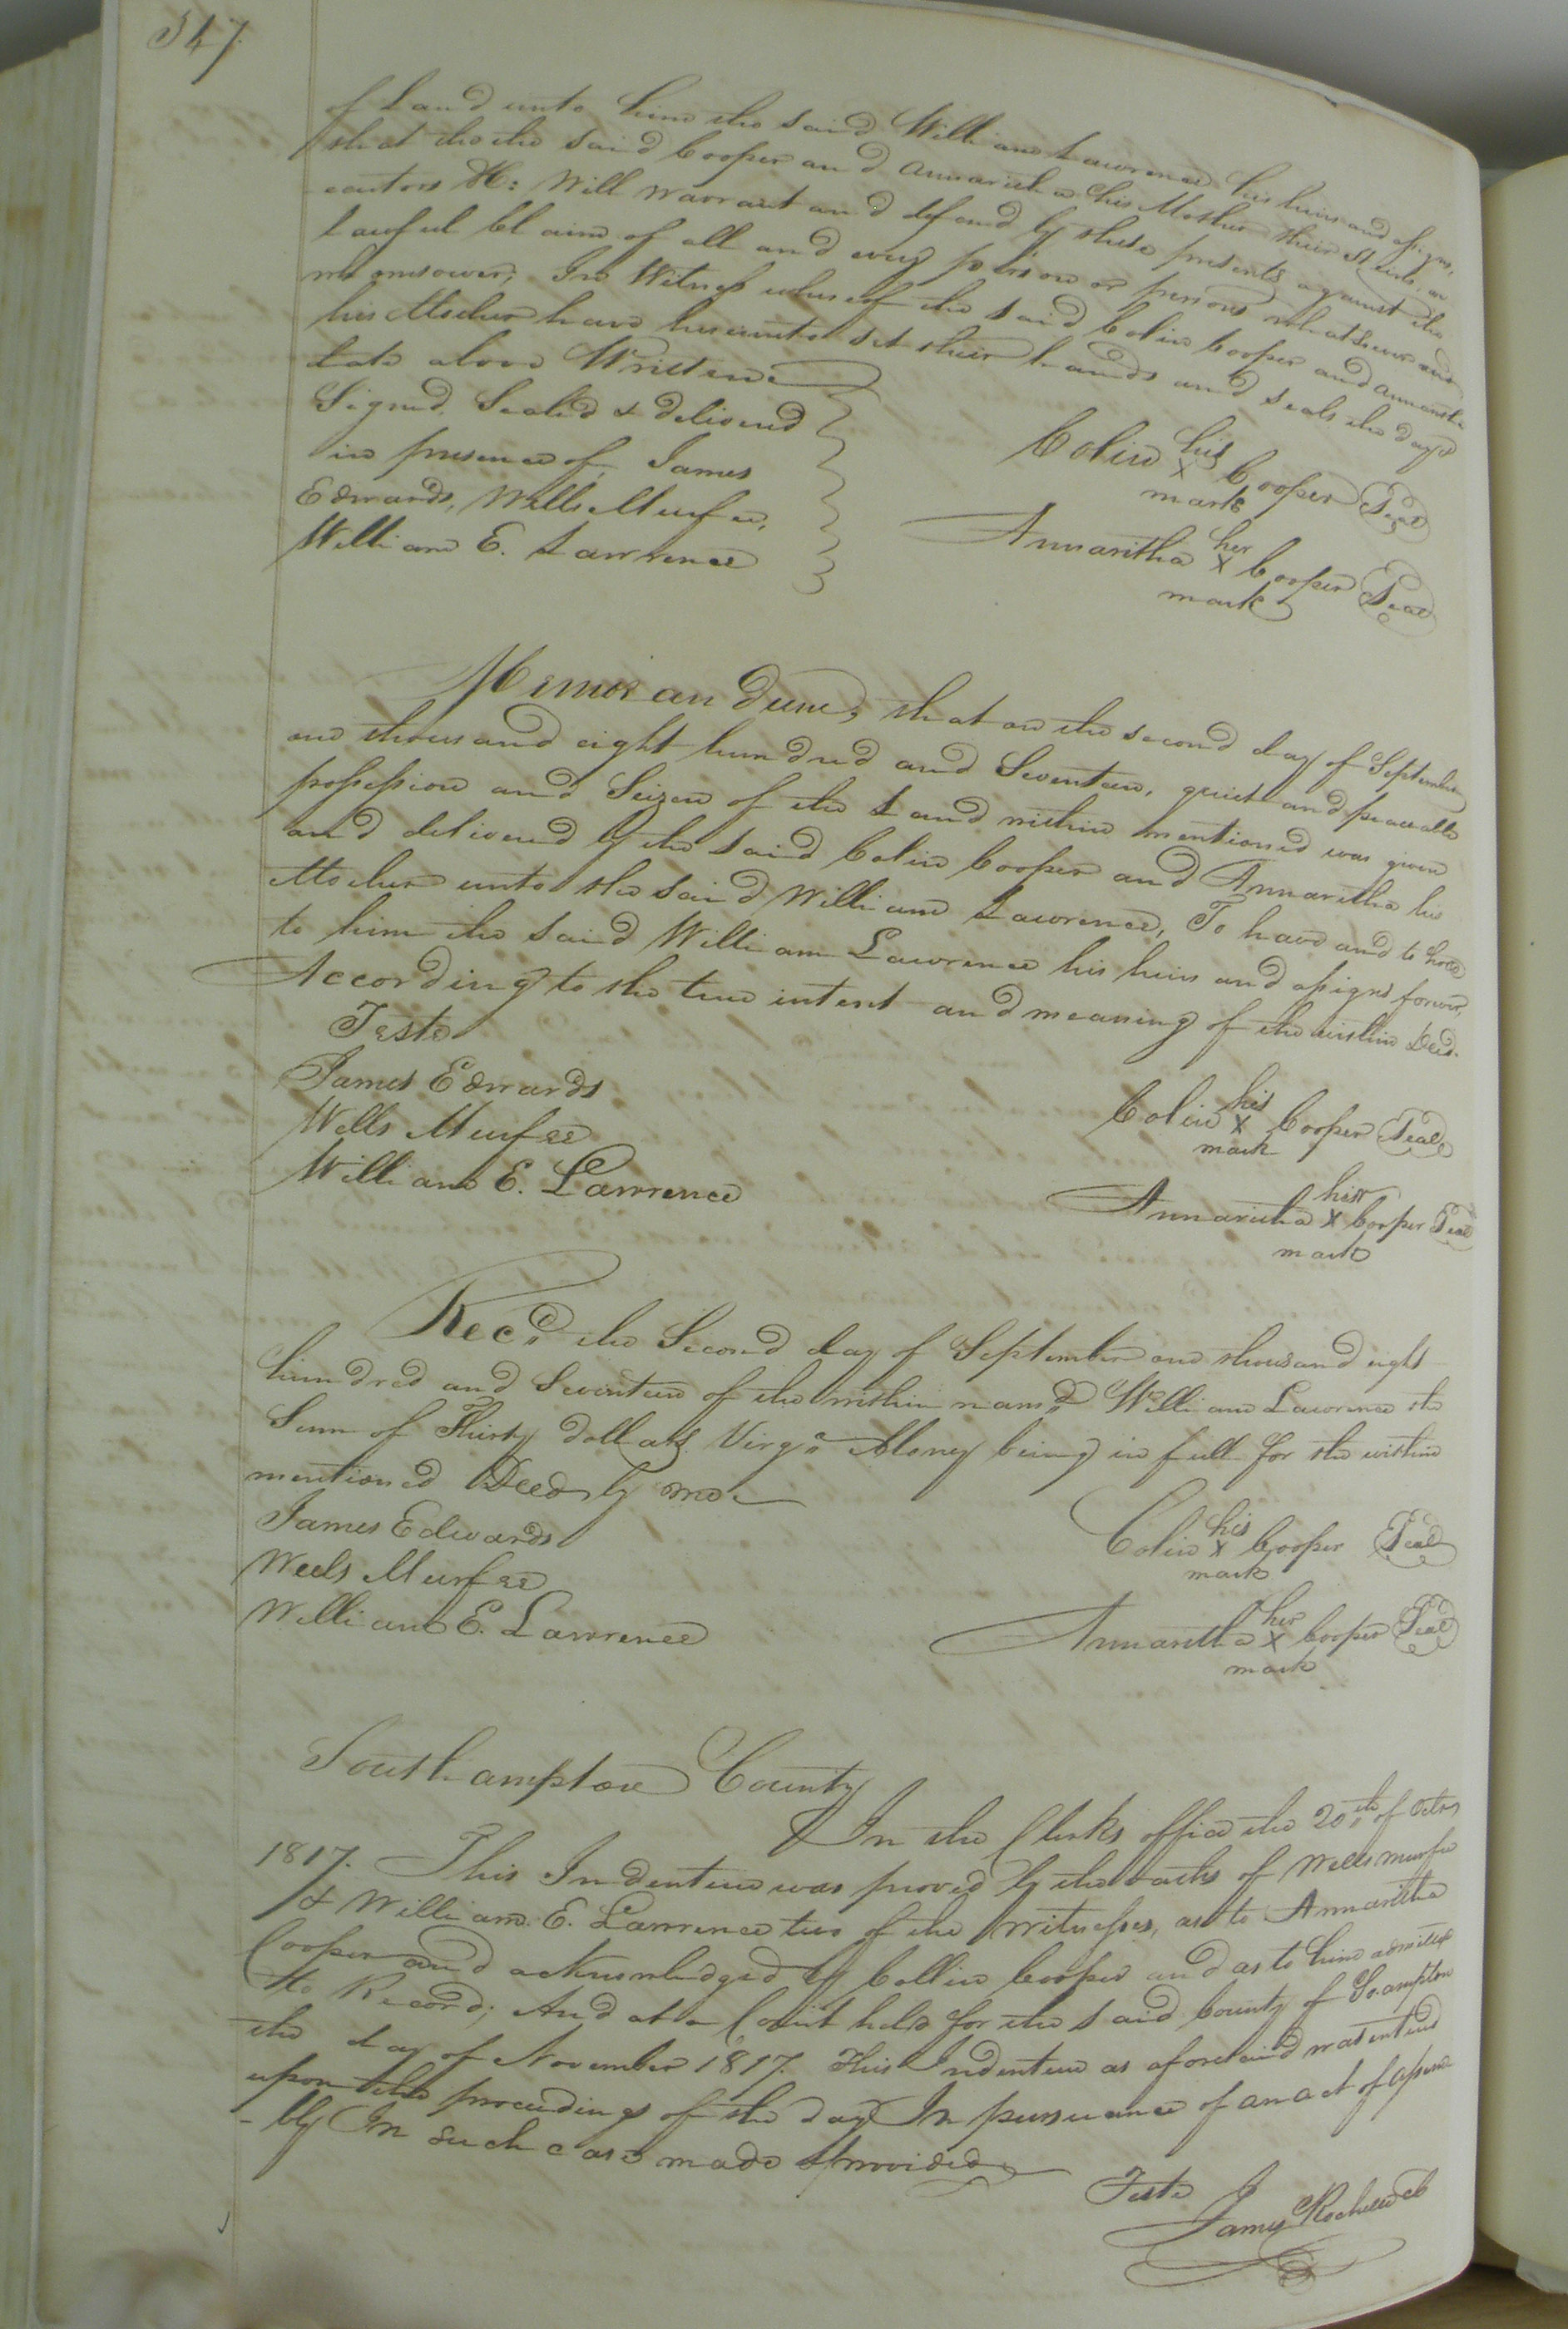 347.
of Land unto him the said William Lawrence his heirs and assigns,
that the the said Cooper and Annaritha his Mother their Heirs, ex
ecutors &c: Will Warrant and defend by these presents against the
Lawful Claim of all and every person or persons whatsoever and
In Witness whereof the said Colin Cooper and Annaritha
his Mother have hereunto set their hands and seals the day &
date above Written
Signed, Sealed & delivered
in presence of James
Edwards, Wells Murfee,
William E. Lawrence
Colin his X mark Cooper Seal
Annaritha her X mark Cooper Seal
Memorandum, that on the second day of September
one thousand eight hundred and Seventeen, quiet and peaceable
possession and Seizen of the Land within mentioned was given
and delivered by the said Colin Cooper and Annaritha his
Mother unto the said William Lawrence, To have and to hold
to him the said William Lawrence his heirs and assigns forever,
According to the true intent and meaning of the within Deed.
Teste
James Edwards
Wells Murfee
William E. Lawrence
Colin his X mark Cooper Seal
Annaritha her X mark Cooper Seal
Recd. the Second day of September one thousand eight
hundred and Seventeen of the within namd. William Lawrence the
Sum of Thirty dollars Virga. Money being in full for the within
mentioned Deed by me
James Edwards
Wells Murfee
William E. Lawrence
Colin his X mark Cooper Seal
Annaritha her X mark Cooper Seal
Southampton County
In the Clerks office the 20th. of Octor
1817. This Indenture was proved by the oaths of Wells Murfee
& William. E. Lawrence two of the Witnesses, as to Annaritha
Cooper and acknowledged by Collin Cooper and as to him admitted
to Record; And at a Court held for the said County of So.ampton
the day of November 1817. This Indenture as aforesaid was entered
upon the proceedings of the day In pursuance of an act of assem
-bly In such case made & provided
Teste
James Rochelle Cl